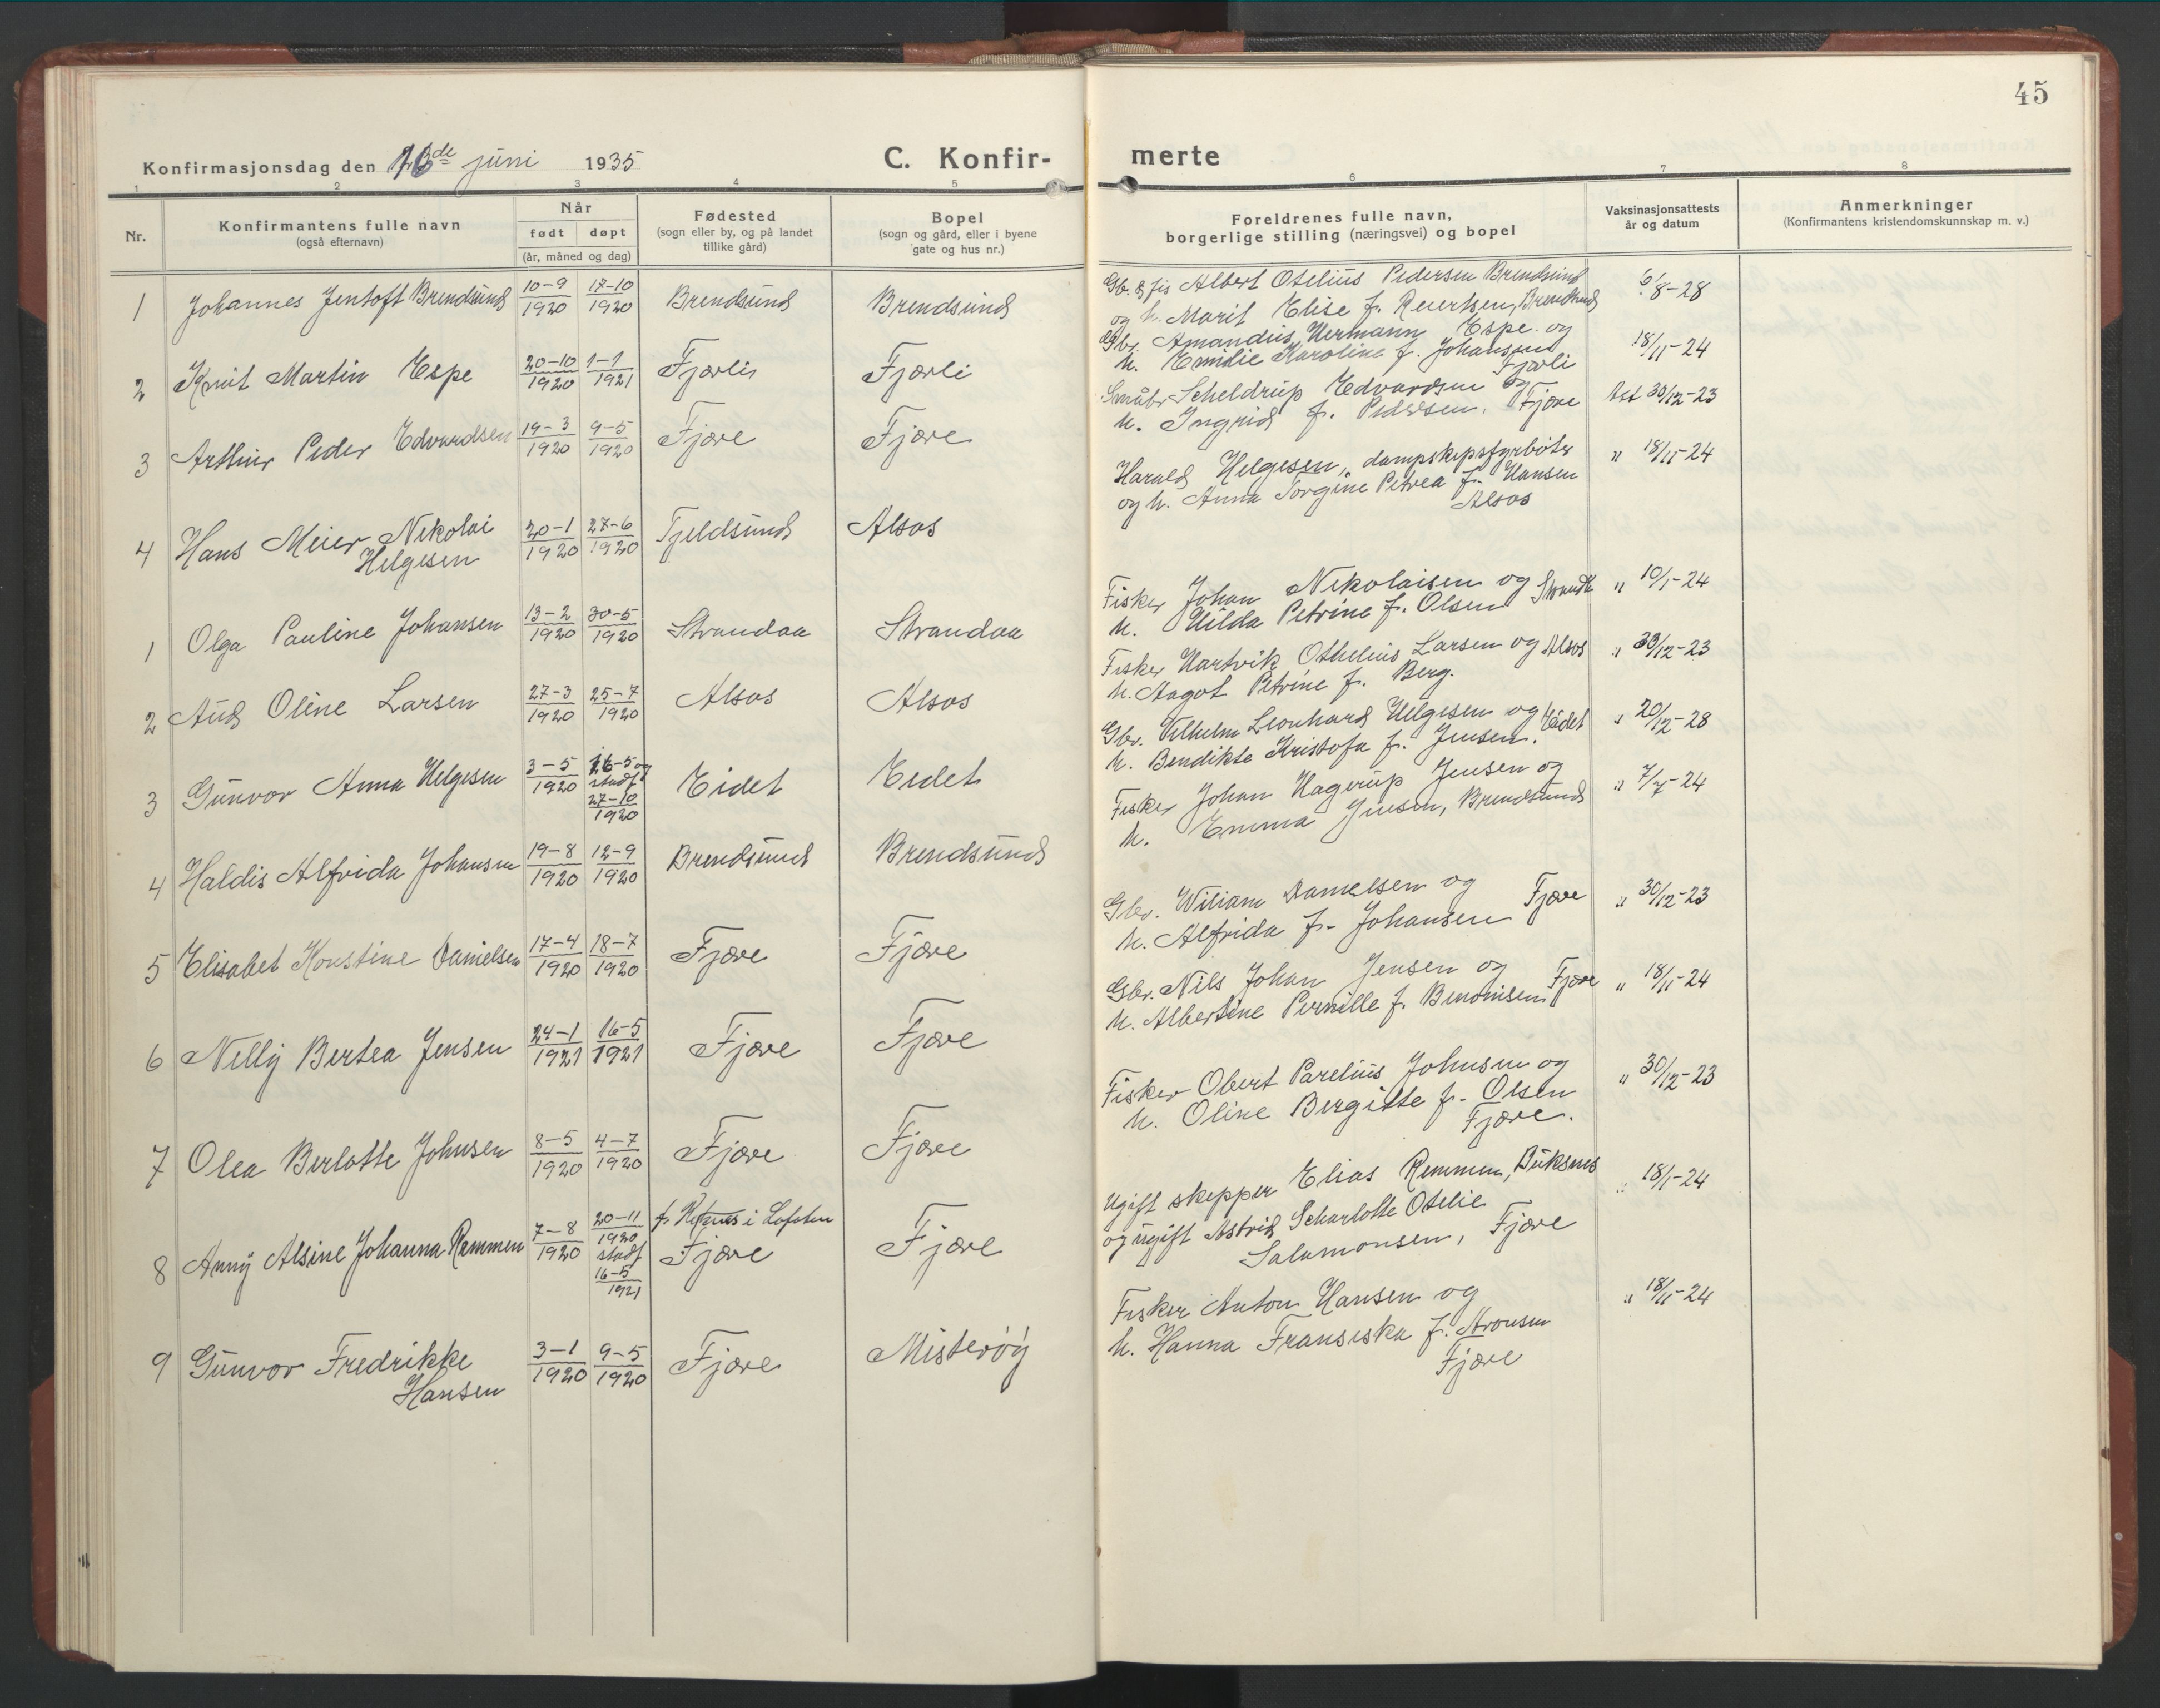 45
Konfirmasjonsdag den 16de juni 1935
C. Konfir-
merte
1 2 3 4 5 6 7 8
Nr.
Konfirmantens fulle navn
(også efternavn)
Når
født døpt
(år, måned og dag)
Fødested
(sogn eller by, og på landet
tillike gård)
Bopel
(sogn og gård, eller i byene
gate og hus nr.)
Foreldrenes fulle navn,
borgerlige stilling (næringsvei) og bopel
Vaksinasjonsattests
år og datum
Anmerkninger
(Konfirmantens kristendomskunnskap m. v.)
1 Johannes Jentoft Brendsund 10-9 1920 17-10 1920 Brendsund Brendsund
Gb. & fis Albert Otelius Pedersen Brendsund
og h. Marit Elise f. Reiertsen, Brendsund
6/8-28
2 Knut Martin Espe 20-10 1920 1-1 1921 Fjærli Fjærli
Gbr. Amandus Hermann Espe og
h. Emilie Karoline f. Johansen
Fjærli
18/11-24
3 Arthur Peder Edvardsen 19-3 1920 9-5 1920 Fjære Fjære
Småbr Scheldrup Edvardsen og
h. Ingrid f. Pedersen. Fjære
Att 30/12-23
4 Hans Meier Nikolai
Helgesen
20-1 1920 27-6 1920 Tjeldsund Alsos
Harald Helgesen, dampskipsfyrbøter
og h. Anna Torgine Petrea f. Hansen
Alsos
" 18/11-24
1 Olga Pauline Johansen 13-2 1920 30-5 1920 Strandaa Strandaa
Fisker Johan Nikolaisen og
h. Hilda Petrine f. Olsen
" 10/1-24
2 Aud Oline Larsen 27-3 1920 25-7 1920 Alsos Alsos
Fisker Hartvik Othelius Larsen og Alsos
h. Aagot Petrine f. Berg.
" 30/12-23
3 Gunvor Anna Helgesen 3-5 1920 16-5 og
stadf
27-10
1920
Eidet Eidet
Gbr. Vilhelm Leonhard Helgesen og Eidet
h. Bendikte Kristofa f. Jensen.
" 20/12-28
4 Haldis Alfrida Johansen 19-8 1920 12-9 1920 Brendsund Brendsund
Fisker Johan Hagerup Jensen og
h. Emma Jensen, Brendsund
" 7/7-24
5 Elisabet Konstine Danielsen 17-4 1920 18-7 1920 Fjære Fjære
Gbr. Wiliam Danielsen og
h. Alfrida f. Johansen Fjære
" 30/12-23
6 Nelly Bertea Jensen 24-1 1921 16-5 1921 Fjære Fjære
Gbr. Nils Johan Jensen og
h. Albertine Pernille f. Benonisen Fjære
" 18/11-24
7 Olea Berlotte Johnsen 8-5 1920 4-7 1920 Fjære Fjære
Fisker Obert Parelius Johnsen og
h. Oline Bergitte f. Olsen
Fjære.
" 30/12-23
8 Anny Alsine Johanna Remmen 7-8 1920 20-11
1920
stadf
16-5
1921
i Lofoten
Fjære Fjære
Ugift skipper Elias Remmen, Buksnes
og ugift Astrid Scharlotte Otelie
Salamonsen, Fjære
" 18/1-24
9 Gunvor Fredrikke
Hansen
3-1 1920 9-5 1920 Fjære Misterøy
Fisker Anton Hansen og
h. Hanna Fransiska f. Aronsen
Fjære
" 18/11-24